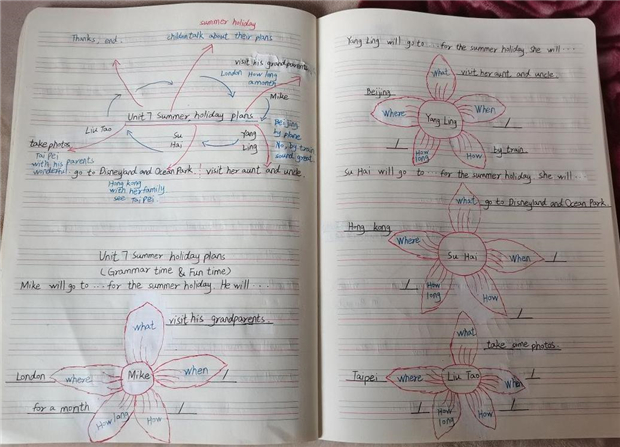 summer holiday
Thanks, end.
children talk about their plans
visit his grandparents
London How long
a month
Mike
Unit 7 Summer holiday plans
Beijing
by plane
No, by train
sound great.
Liu Tao
Su
Hai
Yang
Ling
take photos
Tai Pei
with his parents
wonderful
go to Disneyland and Ocean Park
visit her aunt and uncle.
Hong kong
with her family
see Tai Pei
Unit 7 Summer holiday plans
(Grammar time & Fun time)
Mike will go to ... for the summer holiday. He will ...
what
visit his grandparents.
London
where
Mike
when
/
for a month
How long
How
/
Yang Ling will go to ... for the summer holiday. she will ...
what
visit her aunt and uncle.
Beijing
Where
Yang Ling
When
/
/
How
long
How
by train.
Su Hai will go to ... for the summer holiday. She will ...
what
go to Disneyland and Ocean Park.
H-ng kong
Where
Su Hai
When
/
/
How
long
How
/
what
take ome photos.
Taipei
where
Liu Tao
When
/
/
How
long
How
/